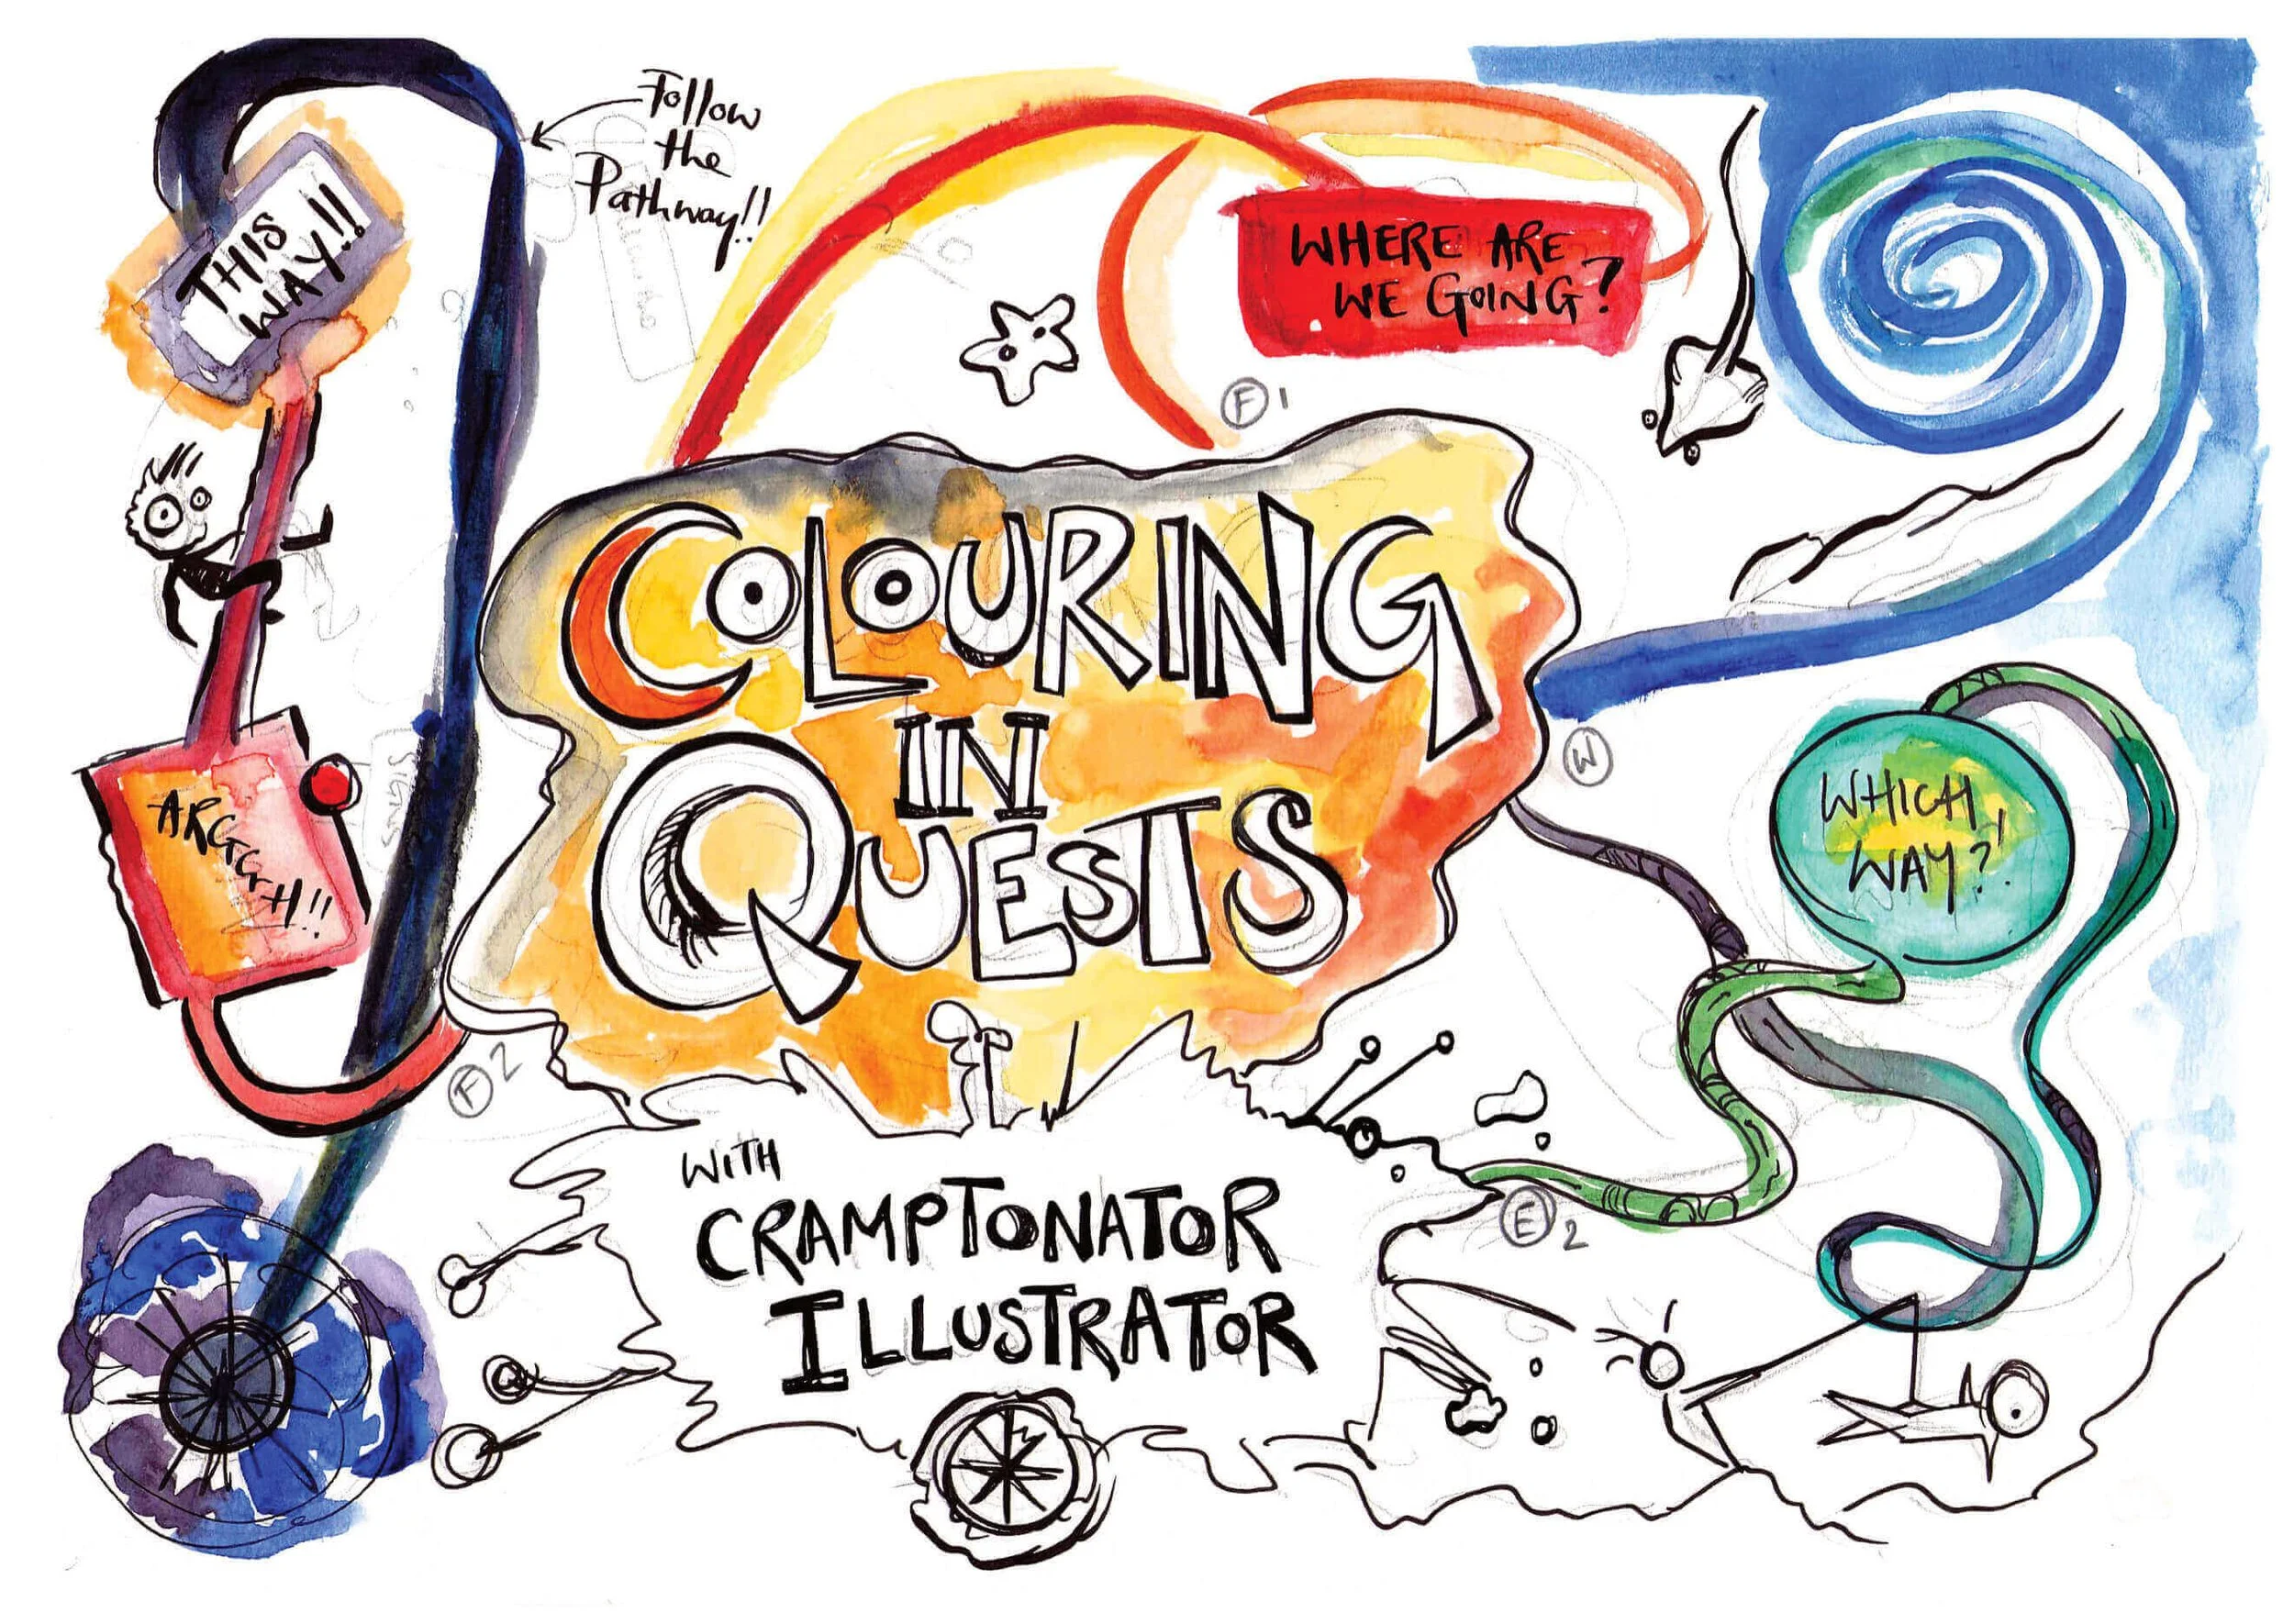 Follow
the
Pathway!!
THIS
WAY!!
WHERE ARE
WE GOING?
F 1
COLOURING
IN
QUESTS
W
WHICH
WAY?!
ARGGGH!!
SIGNS
F 2
E 2
WITH
CRAMPTONATOR
ILLUSTRATOR